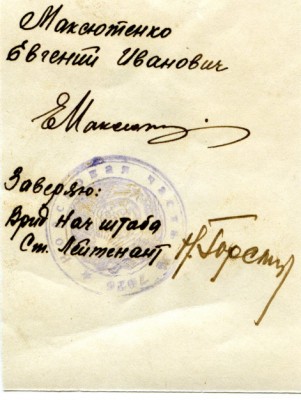 Максютенко
Евгений Иванович
ЕМаксют
Заверяю:
Врид Нач штаба
Ст. Лейтенант